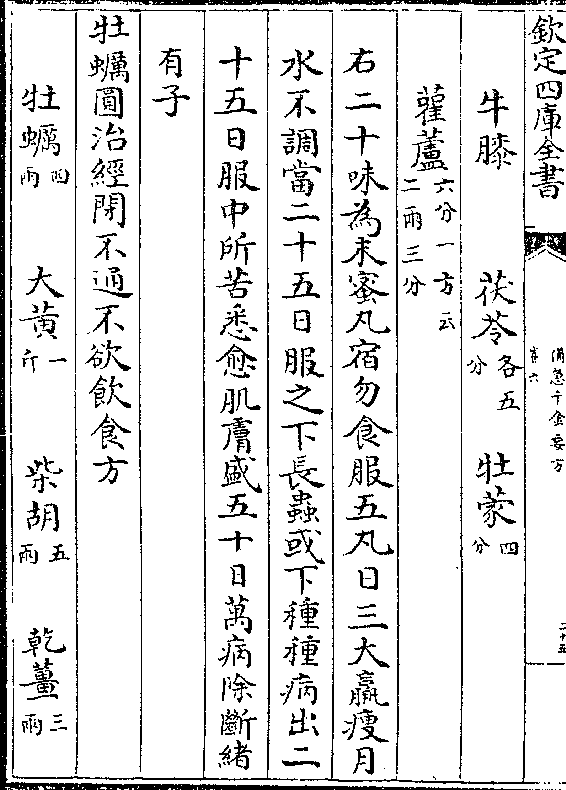 欽定四庫全書
備急千金要方
卷六
二十五
牛膝 茯苓各五分 牡蒙四分
雚蘆六分一方云二兩三分
右二十味為末蜜丸宿勿食服五丸日三大羸瘦月
水不調當二十五日服之下長蟲或下種種病出二
十五日服中所苦悉愈肌膚盛五十日萬病除斷緒
有子
牡蠣圓治經閉不通不欲飲食方
牡蠣四兩 大黃一斤 柴胡五兩 乾薑三兩